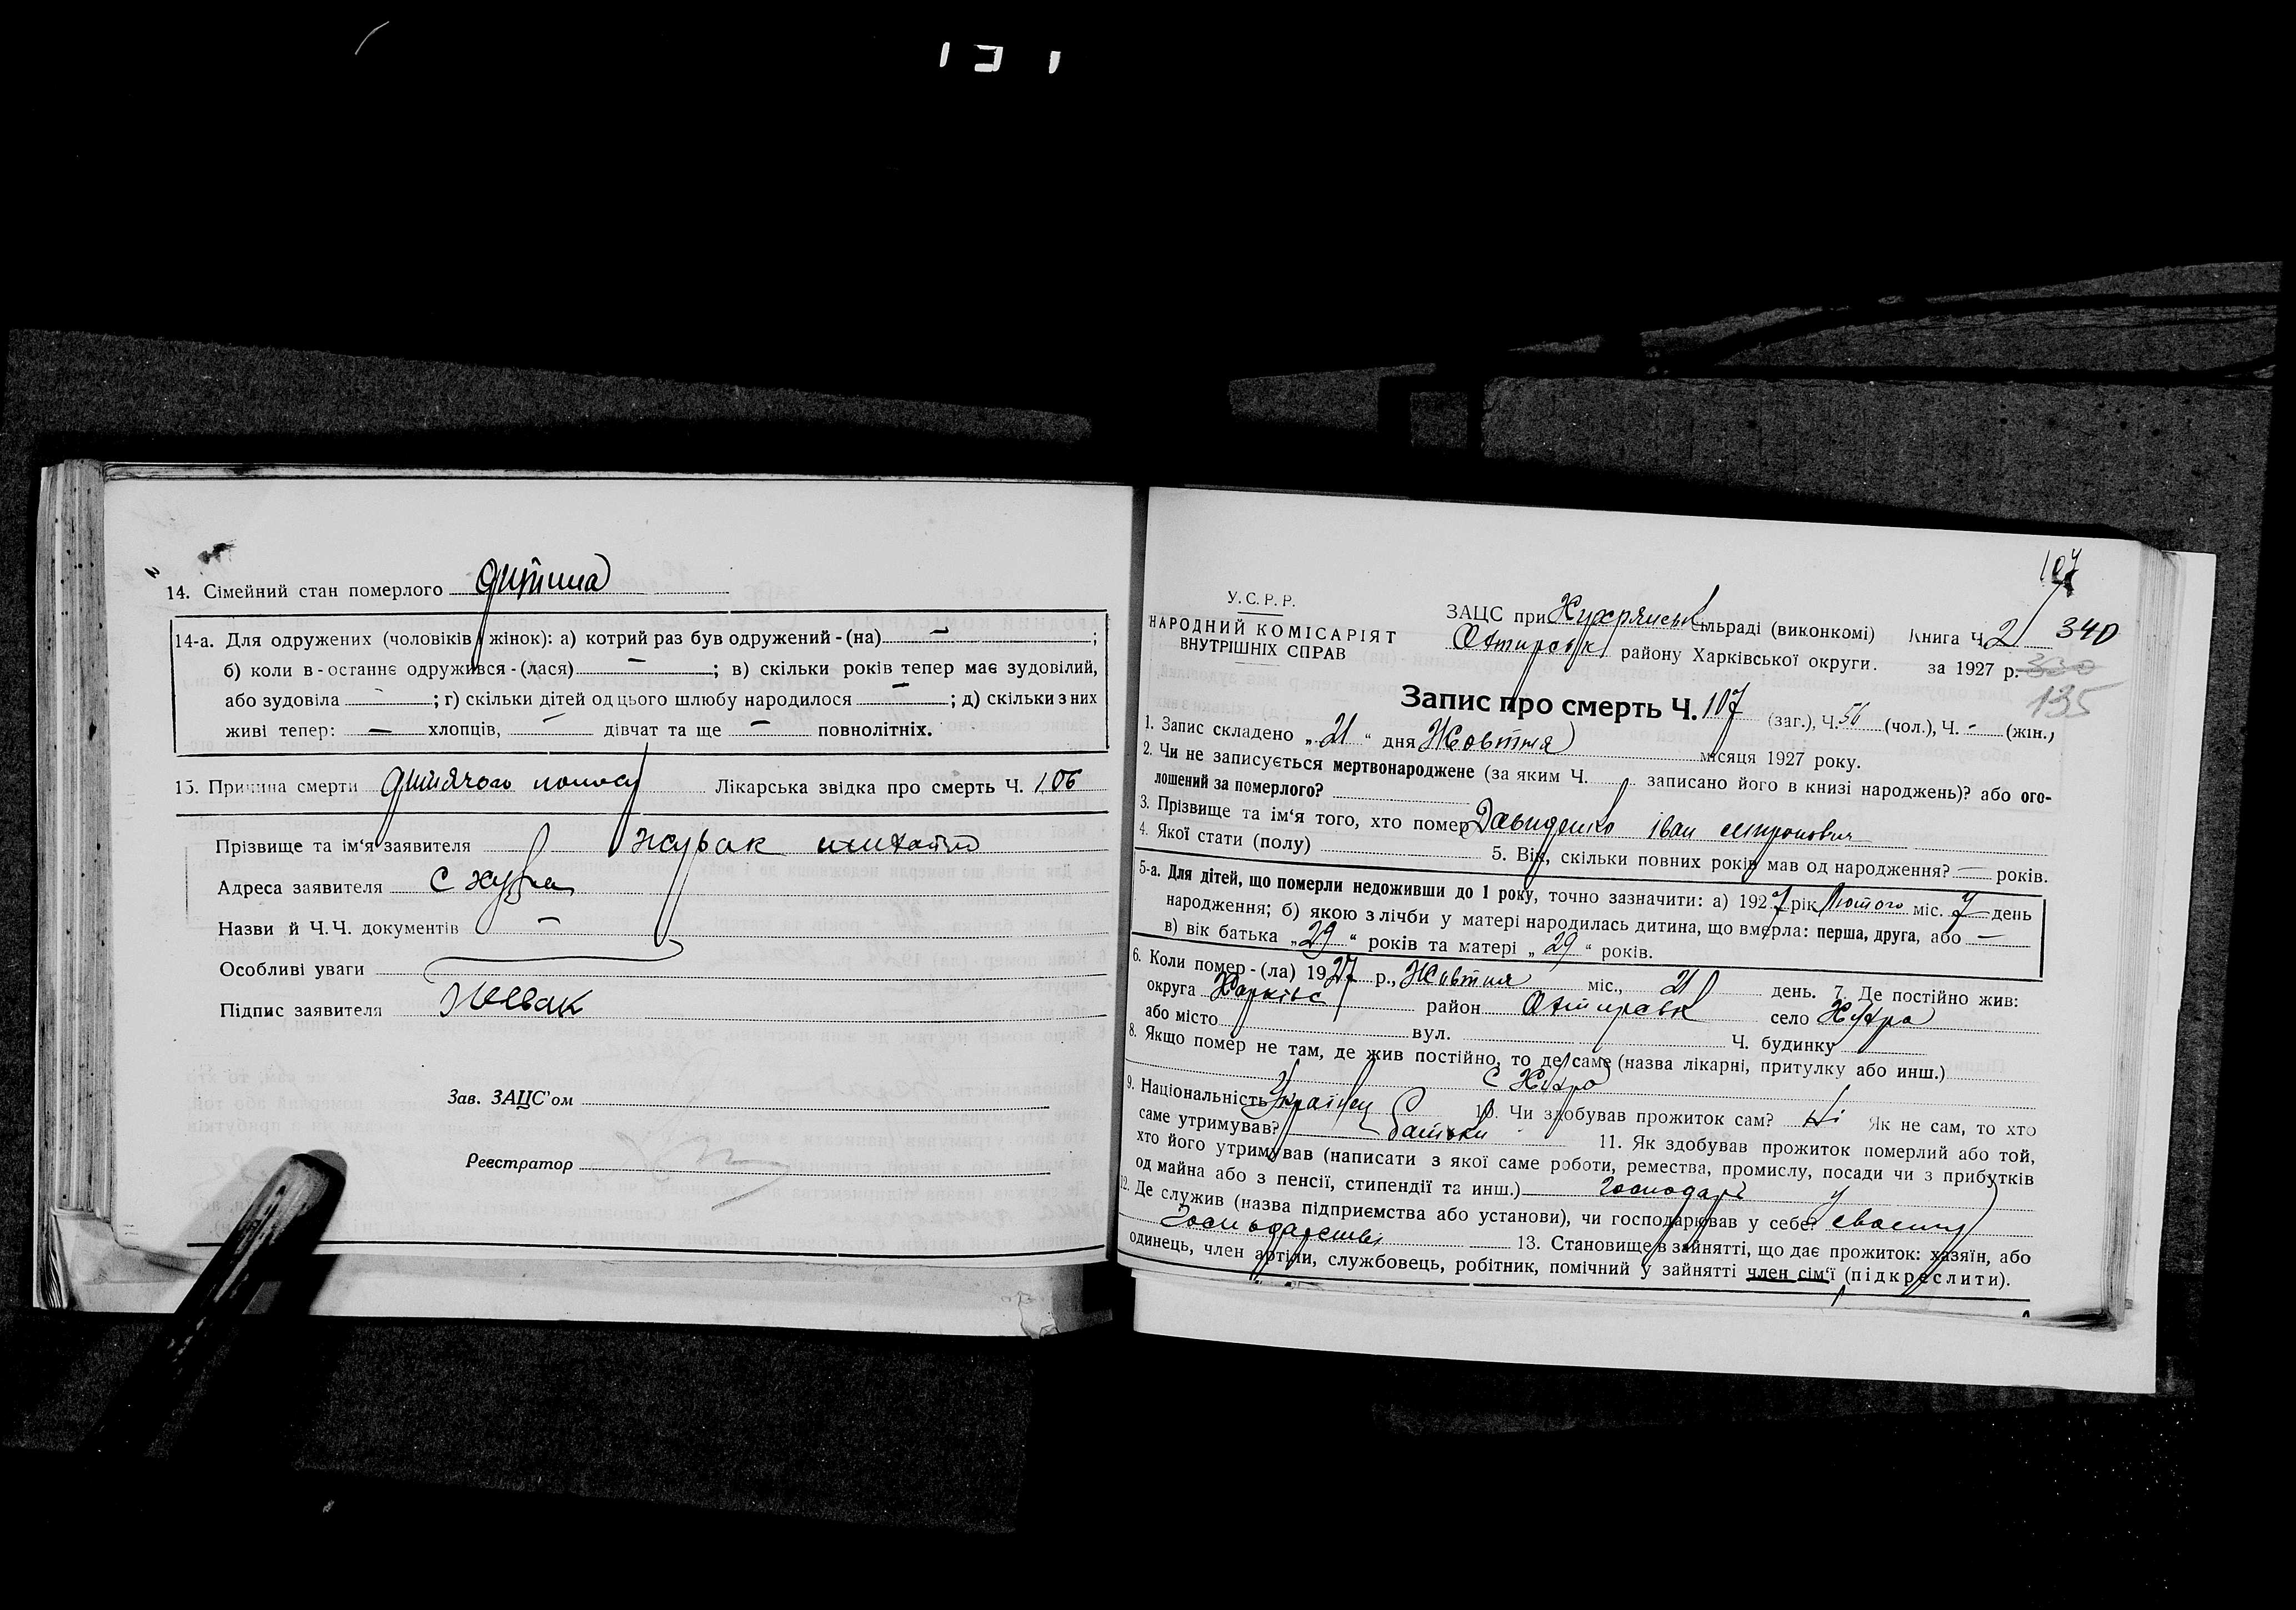 14. Сімейний стан померлого дитина
14-а. Для одружених (чоловіків і жінок): а) котрий раз був одружений - (на) — ;
б) коли в-останнє одружився - (лася) — ; в) скільки років тепер має зудовілий,
або зудовіла — ; г) скільки дітей од цього шлюбу народилося — ; д) скільки з них
живі тепер: — хлопців, — дівчат та ще — повнолітніх.
15. Причина смерти дитячого поносу Лікарська звідка про смерть Ч. 106
Прізвище та ім'я заявителя
Адреса заявителя с
Назви й Ч.Ч. документів —
Особливі уваги
Підпис заявителя
Зав. ЗАЦС'ом
Реєстратор
107
У.С.Р.Р.
НАРОДНИЙ КОМІСАРІЯТ
ВНУТРІШНІХ СПРАВ
ЗАЦС при сільраді (виконкомі) Книга Ч. 2 340
району Харківської округи. за 1927 р. 330
135
Запис про смерть Ч. 107 (заг.), Ч. 56 (чол.), Ч. - (жін.)
1. Запис складено „21“ дня Жовтня місяця 1927 року.
2. Чи не записується мертвонароджене (за яким Ч. записано його в книзі народжень)? або ого-
лошений за померлого?
3. Прізвище та ім'я того, хто помер Давиденко Іван Миронович
4. Якої стати (полу) 5. Вік, скільки повних років мав од народження? — років.
5-а. Для дітей, що померли недоживши до 1 року, точно зазначити: а) 1927 рік Лютого міс. 7 день
народження; б) якою з лічби у матері народилась дитина, що вмерла: перша, друга, або —
в) вік батька „29“ років та матері „29“ років.
6. Коли помер - (ла) 1927 р., Жовтня міс., 21 день. 7. Де постійно жив:
округа Харківс район село
або місто вул. Ч. будинку
8. Якщо помер не там, де жив постійно, то де саме (назва лікарні, притулку або инш.)
с
9. Національність Українец 10. Чи здобував прожиток сам? Ні Як не сам, то хто
саме утримував? батьки 11. Як здобував прожиток померлий або той,
хто його утримував (написати з якої саме роботи, ремества, промислу, посади чи з прибутків
од майна або з пенсії, стипендії та инш.) господарь у
12. Де служив (назва підприємства або установи), чи господарював у себе? своему
господарстві 13. Становище в зайнятті, що дає прожиток: хазяїн, або
одинець, член артіли, службовець, робітник, помічний у зайнятті член сім'ї (підкреслити).